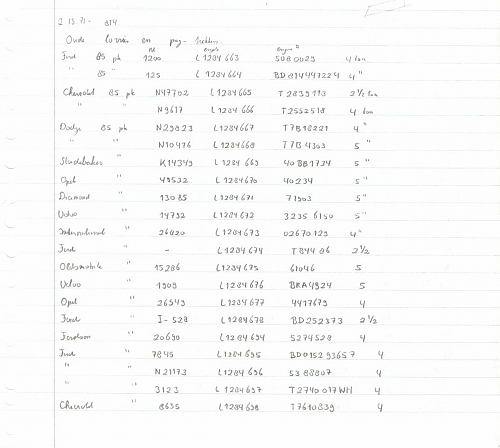 2.13.71- 814
Oude en
Ford 85 pk 1200 L1284663 5080029 4 ton
" 85 " 125 L1284664 BD814447224 4 "
Chevrolet 85 pk N47702 L1284665 T2839118 2 1/2 ton
" " N9617 L1284666 T2552518 4 ton
Dodge 85 pk N29823 L1284667 T7B18221 4 "
" " N10476 L1284668 T7B4303 5 "
Studebaker " K14349 L1284669 40BB1734 5 "
Opel " 49532 L1284670 40234 5 "
Diamond " 13085 L1284671 71903 5 "
Volvo " 14792 L1284672 3235 6150 5 "
International " 26820 L1284673 02670129 4 "
Ford " - L1284674 T844 86 2 1/2
Oldsmobile " 15286 L1284675 61046 5
Volvo " 1909 L1284676 BRA4924 5
Opel " 26549 L1284677 4417679 4
Ford " I-528 L1284678 BD252373 2 1/2
" 20690 L1284694 5274528 4
Ford " 7845 L1284695 BD015293657 4
" " N21173 L1284696 5388807 4
" 3123 L1284697 T2740017WH 4
Chevrolet " 8635 L1284698 T7610839 4